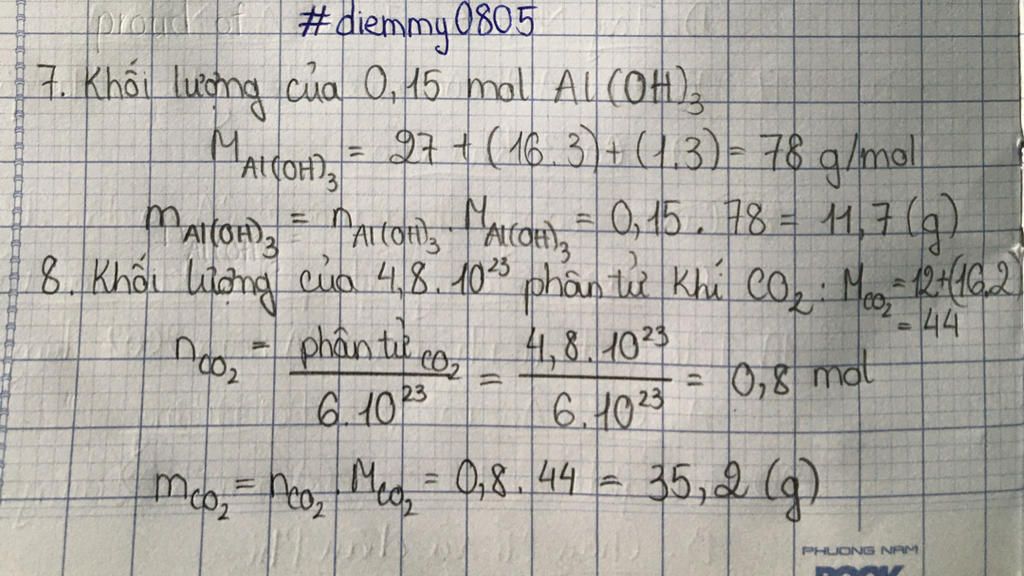 proud of #diemmy0805
7. Khối lượng của 0,15 mol Al(OH)₃
M Al(OH)₃ = 27 + (16.3) + (1.3) = 78 g/mol
m Al(OH)₃ = n Al(OH)₃ . M Al(OH)₃ = 0,15 . 78 = 11,7 (g)
8. Khối lượng của 4,8.10²³ phân tử khí CO₂ : M CO₂ = 12+(16.2)
= 44
n CO₂ = phân tử CO₂ / 6.10²³ = 4,8.10²³ / 6.10²³ = 0,8 mol
m CO₂ = n CO₂ . M CO₂ = 0,8 . 44 = 35,2 (g)
PHUONG NAM
BOOK